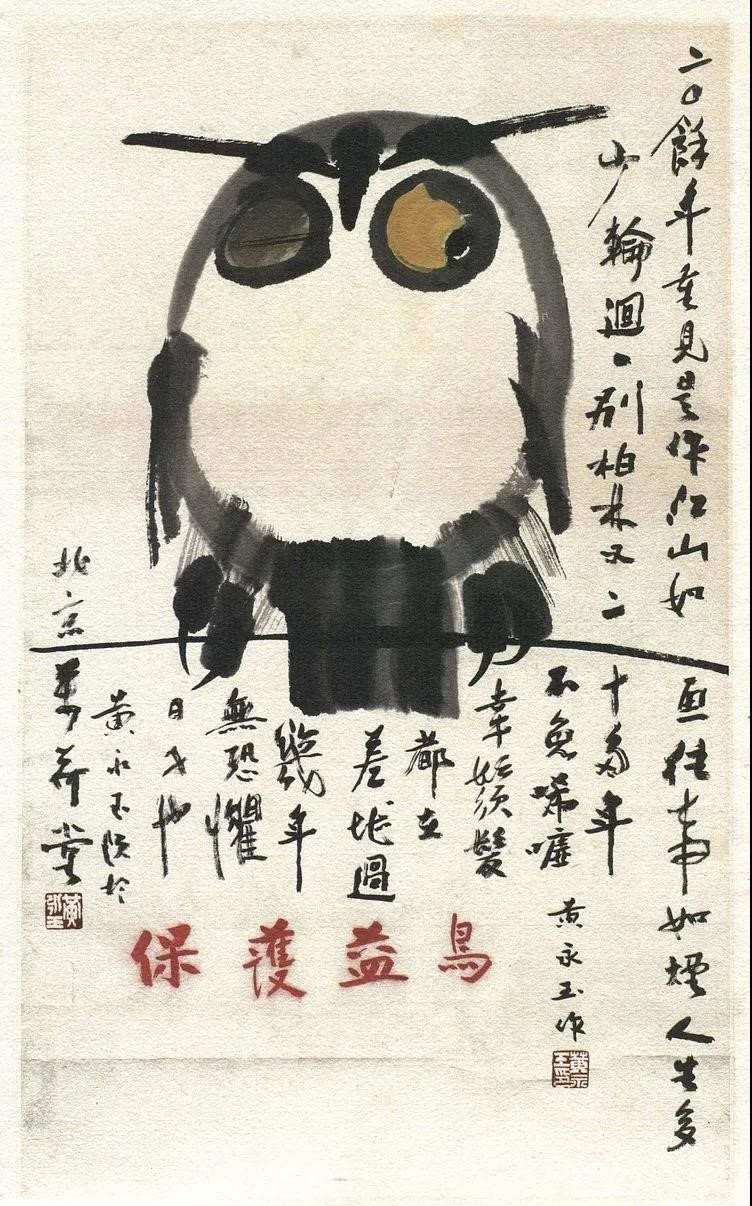 二〇餘年重見是作江山如画往事如煙人生多
少輪迴一別柏林又二十多年
不免唏嘘
幸好须髮
都在
差堪過
幾年
無恐懼
日子也
黄永玉於
北京萬荷堂
黄永玉
保護益鳥
黄永玉作
黄永玉印